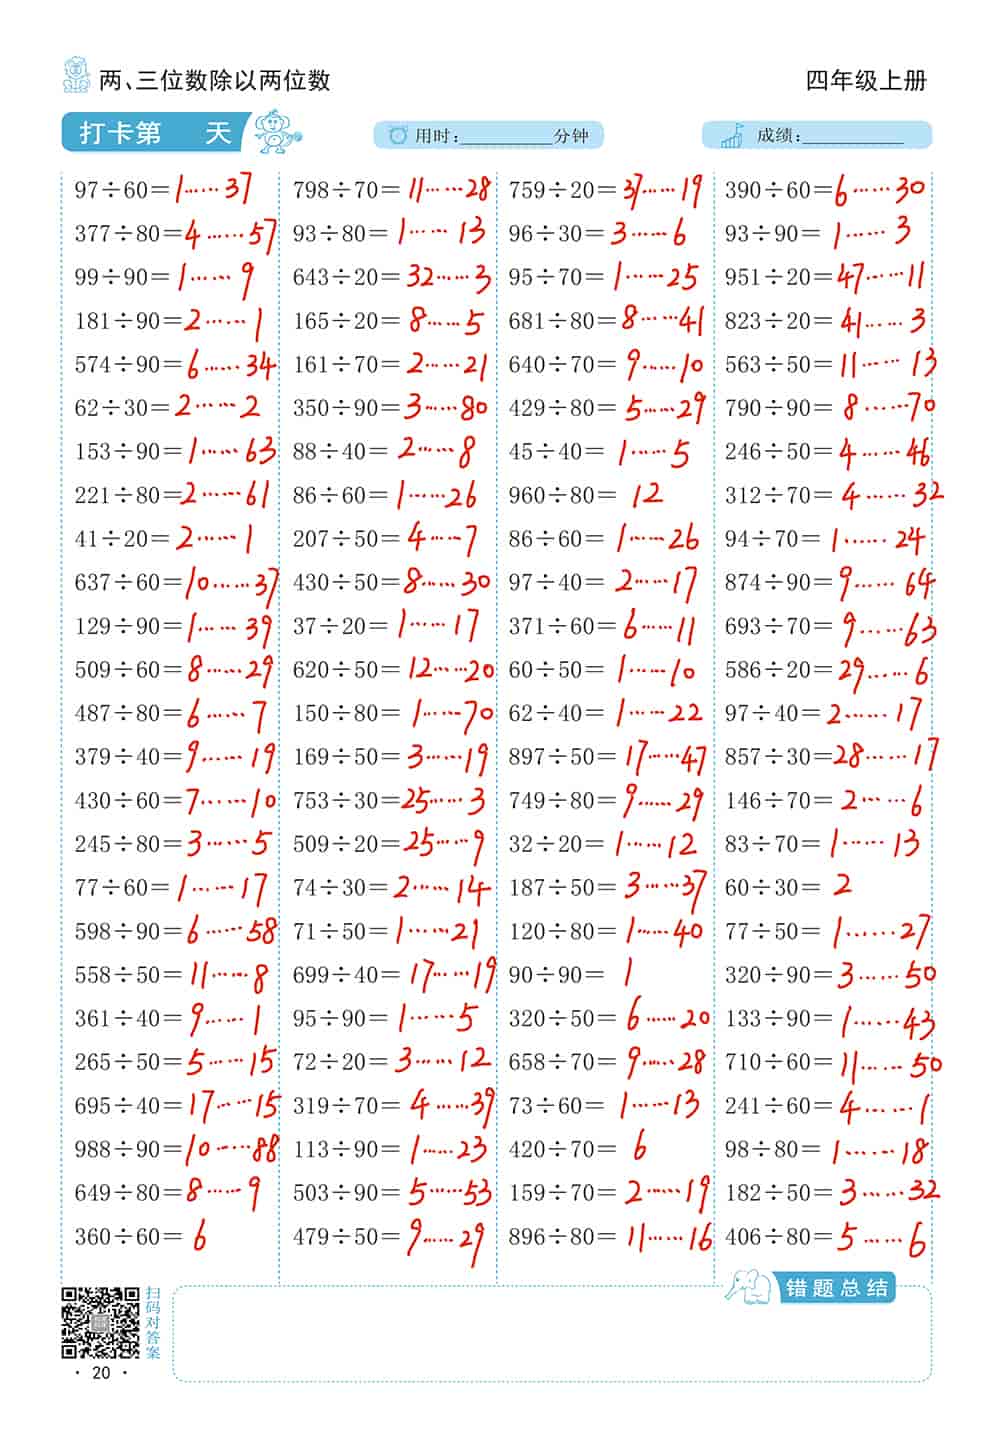 两、三位数除以两位数 四年级上册
打卡第 天 用时:__________分钟 成绩:__________
97÷60=1……37 798÷70=11……28 759÷20=37……19 390÷60=6……30
377÷80=4……57 93÷80=1……13 96÷30=3……6 93÷90=1……3
99÷90=1……9 643÷20=32……3 95÷70=1……25 951÷20=47……11
181÷90=2……1 165÷20=8……5 681÷80=8……41 823÷20=41……3
574÷90=6……34 161÷70=2……21 640÷70=9……10 563÷50=11……13
62÷30=2……2 350÷90=3……80 429÷80=5……29 790÷90=8……70
153÷90=1……63 88÷40=2……8 45÷40=1……5 246÷50=4……46
221÷80=2……61 86÷60=1……26 960÷80=12 312÷70=4……32
41÷20=2……1 207÷50=4……7 86÷60=1……26 94÷70=1……24
637÷60=10……37 430÷50=8……30 97÷40=2……17 874÷90=9……64
129÷90=1……39 37÷20=1……17 371÷60=6……11 693÷70=9……63
509÷60=8……29 620÷50=12……20 60÷50=1……10 586÷20=29……6
487÷80=6……7 150÷80=1……70 62÷40=1……22 97÷40=2……17
379÷40=9……19 169÷50=3……19 897÷50=17……47 857÷30=28……17
430÷60=7……10 753÷30=25……3 749÷80=9……29 146÷70=2……6
245÷80=3……5 509÷20=25……9 32÷20=1……12 83÷70=1……13
77÷60=1……17 74÷30=2……14 187÷50=3……37 60÷30=2
598÷90=6……58 71÷50=1……21 120÷80=1……40 77÷50=1……27
558÷50=11……8 699÷40=17……19 90÷90=1 320÷90=3……50
361÷40=9……1 95÷90=1……5 320÷50=6……20 133÷90=1……43
265÷50=5……15 72÷20=3……12 658÷70=9……28 710÷60=11……50
695÷40=17……15 319÷70=4……39 73÷60=1……13 241÷60=4……1
988÷90=10……88 113÷90=1……23 420÷70=6 98÷80=1……18
649÷80=8……9 503÷90=5……53 159÷70=2……19 182÷50=3……32
360÷60=6 479÷50=9……29 896÷80=11……16 406÷80=5……6
扫码对答案
错题总结
· 20 ·